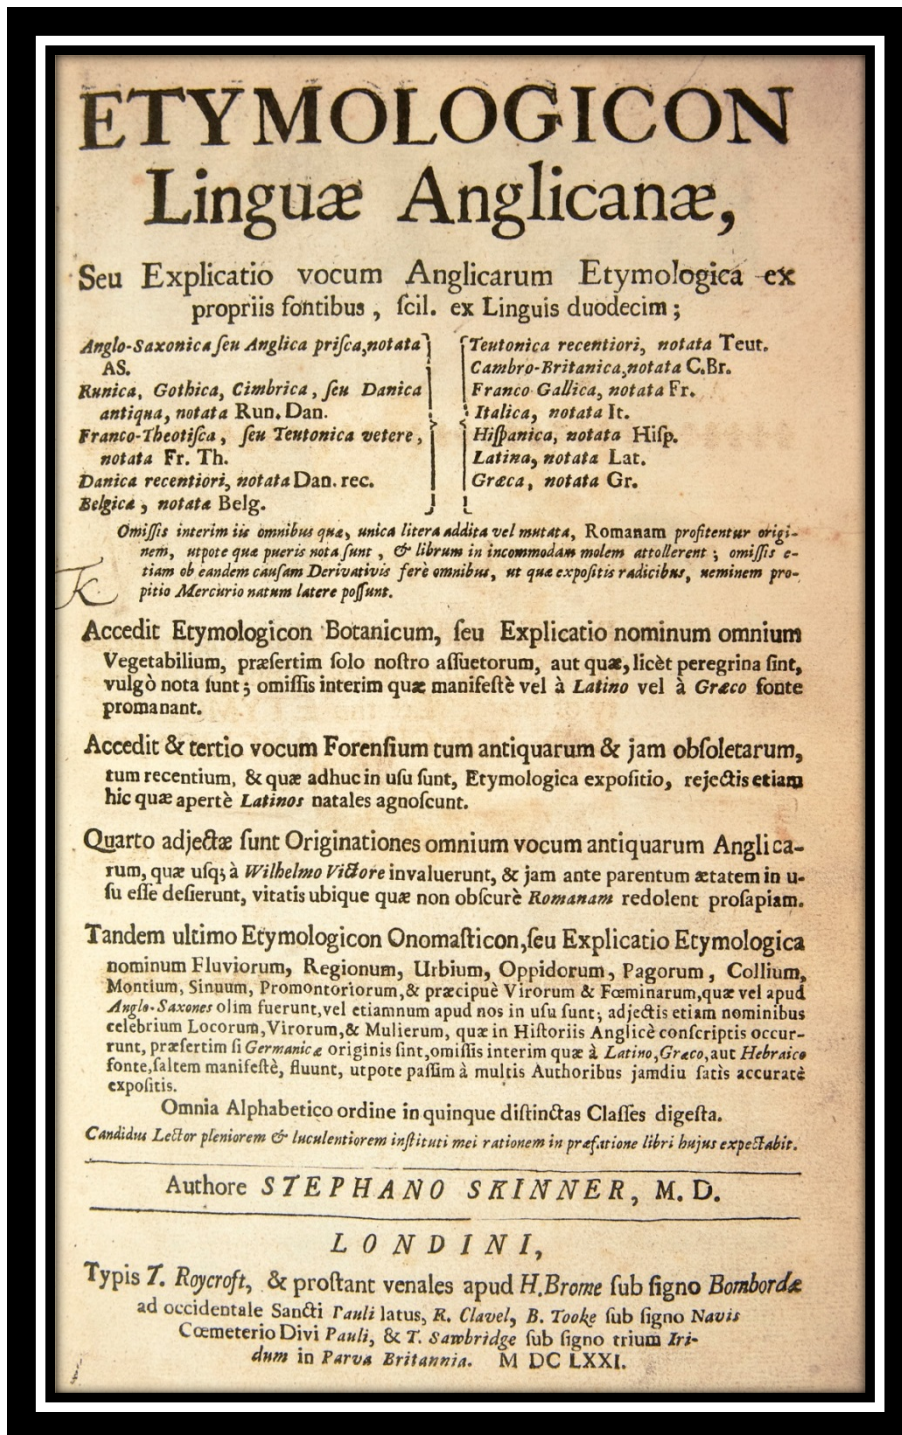 ETYMOLOGICON
Linguæ Anglicanæ,
Seu Explicatio vocum Anglicarum Etymologica ex
propriis fontibus, ſcil. ex Linguis duodecim;
Anglo-Saxonica ſeu Anglica priſca, notata
AS.
Runica, Gothica, Cimbrica, ſeu Danica
antiqua, notata Run. Dan.
Franco-Theotiſca, ſeu Teutonica vetere,
notata Fr. Th.
Danica recentiori, notata Dan. rec.
Belgica, notata Belg.
Teutonica recentiori, notata Teut.
Cambro-Britanica, notata C.Br.
Franco Gallica, notata Fr.
Italica, notata It.
Hiſpanica, notata Hiſp.
Latina, notata Lat.
Græca, notata Gr.
Omiſſis interim iis omnibus quæ, unica litera addita vel mutata, Romanam profitentur origi-
nem, utpote quæ pueris nota ſunt, & librum in incommodam molem attollerent; omiſſis e-
tiam ob eandem cauſam Derivativis ferè omnibus, ut quæ expoſitis radicibus, neminem pro-
pitio Mercurio natum latere poſſunt.
Accedit Etymologicon Botanicum, ſeu Explicatio nominum omnium
Vegetabilium, præſertim ſolo noſtro aſſuetorum, aut quæ, licèt peregrina ſint,
vulgò nota ſunt; omiſſis interim quæ manifeſtè vel à Latino vel à Græco fonte
promanant.
Accedit & tertio vocum Forenſium tum antiquarum & jam obſoletarum,
tum recentium, & quæ adhuc in uſu ſunt, Etymologica expoſitio, rejectis etiam
hic quæ apertè Latinos natales agnoſcunt.
Quarto adjectæ ſunt Originationes omnium vocum antiquarum Anglica-
rum, quæ uſq; à Wilhelmo Victore invaluerunt, & jam ante parentum ætatem in u-
ſu eſſe deſierunt, vitatis ubique quæ non obſcurè Romanam redolent proſapiam.
Tandem ultimo Etymologicon Onomaſticon, ſeu Explicatio Etymologica
nominum Fluviorum, Regionum, Urbium, Oppidorum, Pagorum, Collium,
Montium, Sinuum, Promontoriorum, & præcipuè Virorum & Fœminarum, quæ vel apud
Anglo-Saxones olim fuerunt, vel etiamnum apud nos in uſu ſunt; adjectis etiam nominibus
celebrium Locorum, Virorum, & Mulierum, quæ in Hiſtoriis Anglicè conſcriptis occur-
runt, præſertim ſi Germanicæ originis ſint, omiſſis interim quæ à Latino, Græco, aut Hebraico
fonte, ſaltem manifeſtè, fluunt, utpote paſſim à multis Authoribus jamdiu ſatìs accuratè
expoſitis.
Omnia Alphabetico ordine in quinque diſtinctas Claſſes digeſta.
Candidus Lector pleniorem & luculentiorem inſtituti mei rationem in præfatione libri hujus expectabit.
Authore STEPHANO SKINNER, M. D.
LONDINI,
Typis T. Roycroft, & proſtant venales apud H. Brome ſub ſigno Bombordæ
ad occidentale Sancti Pauli latus, R. Clavel, B. Tooke ſub ſigno Navis
Cœmeterio Divi Pauli, & T. Sawbridge ſub ſigno trium Iri-
dum in Parva Britannia. M DC LXXI.